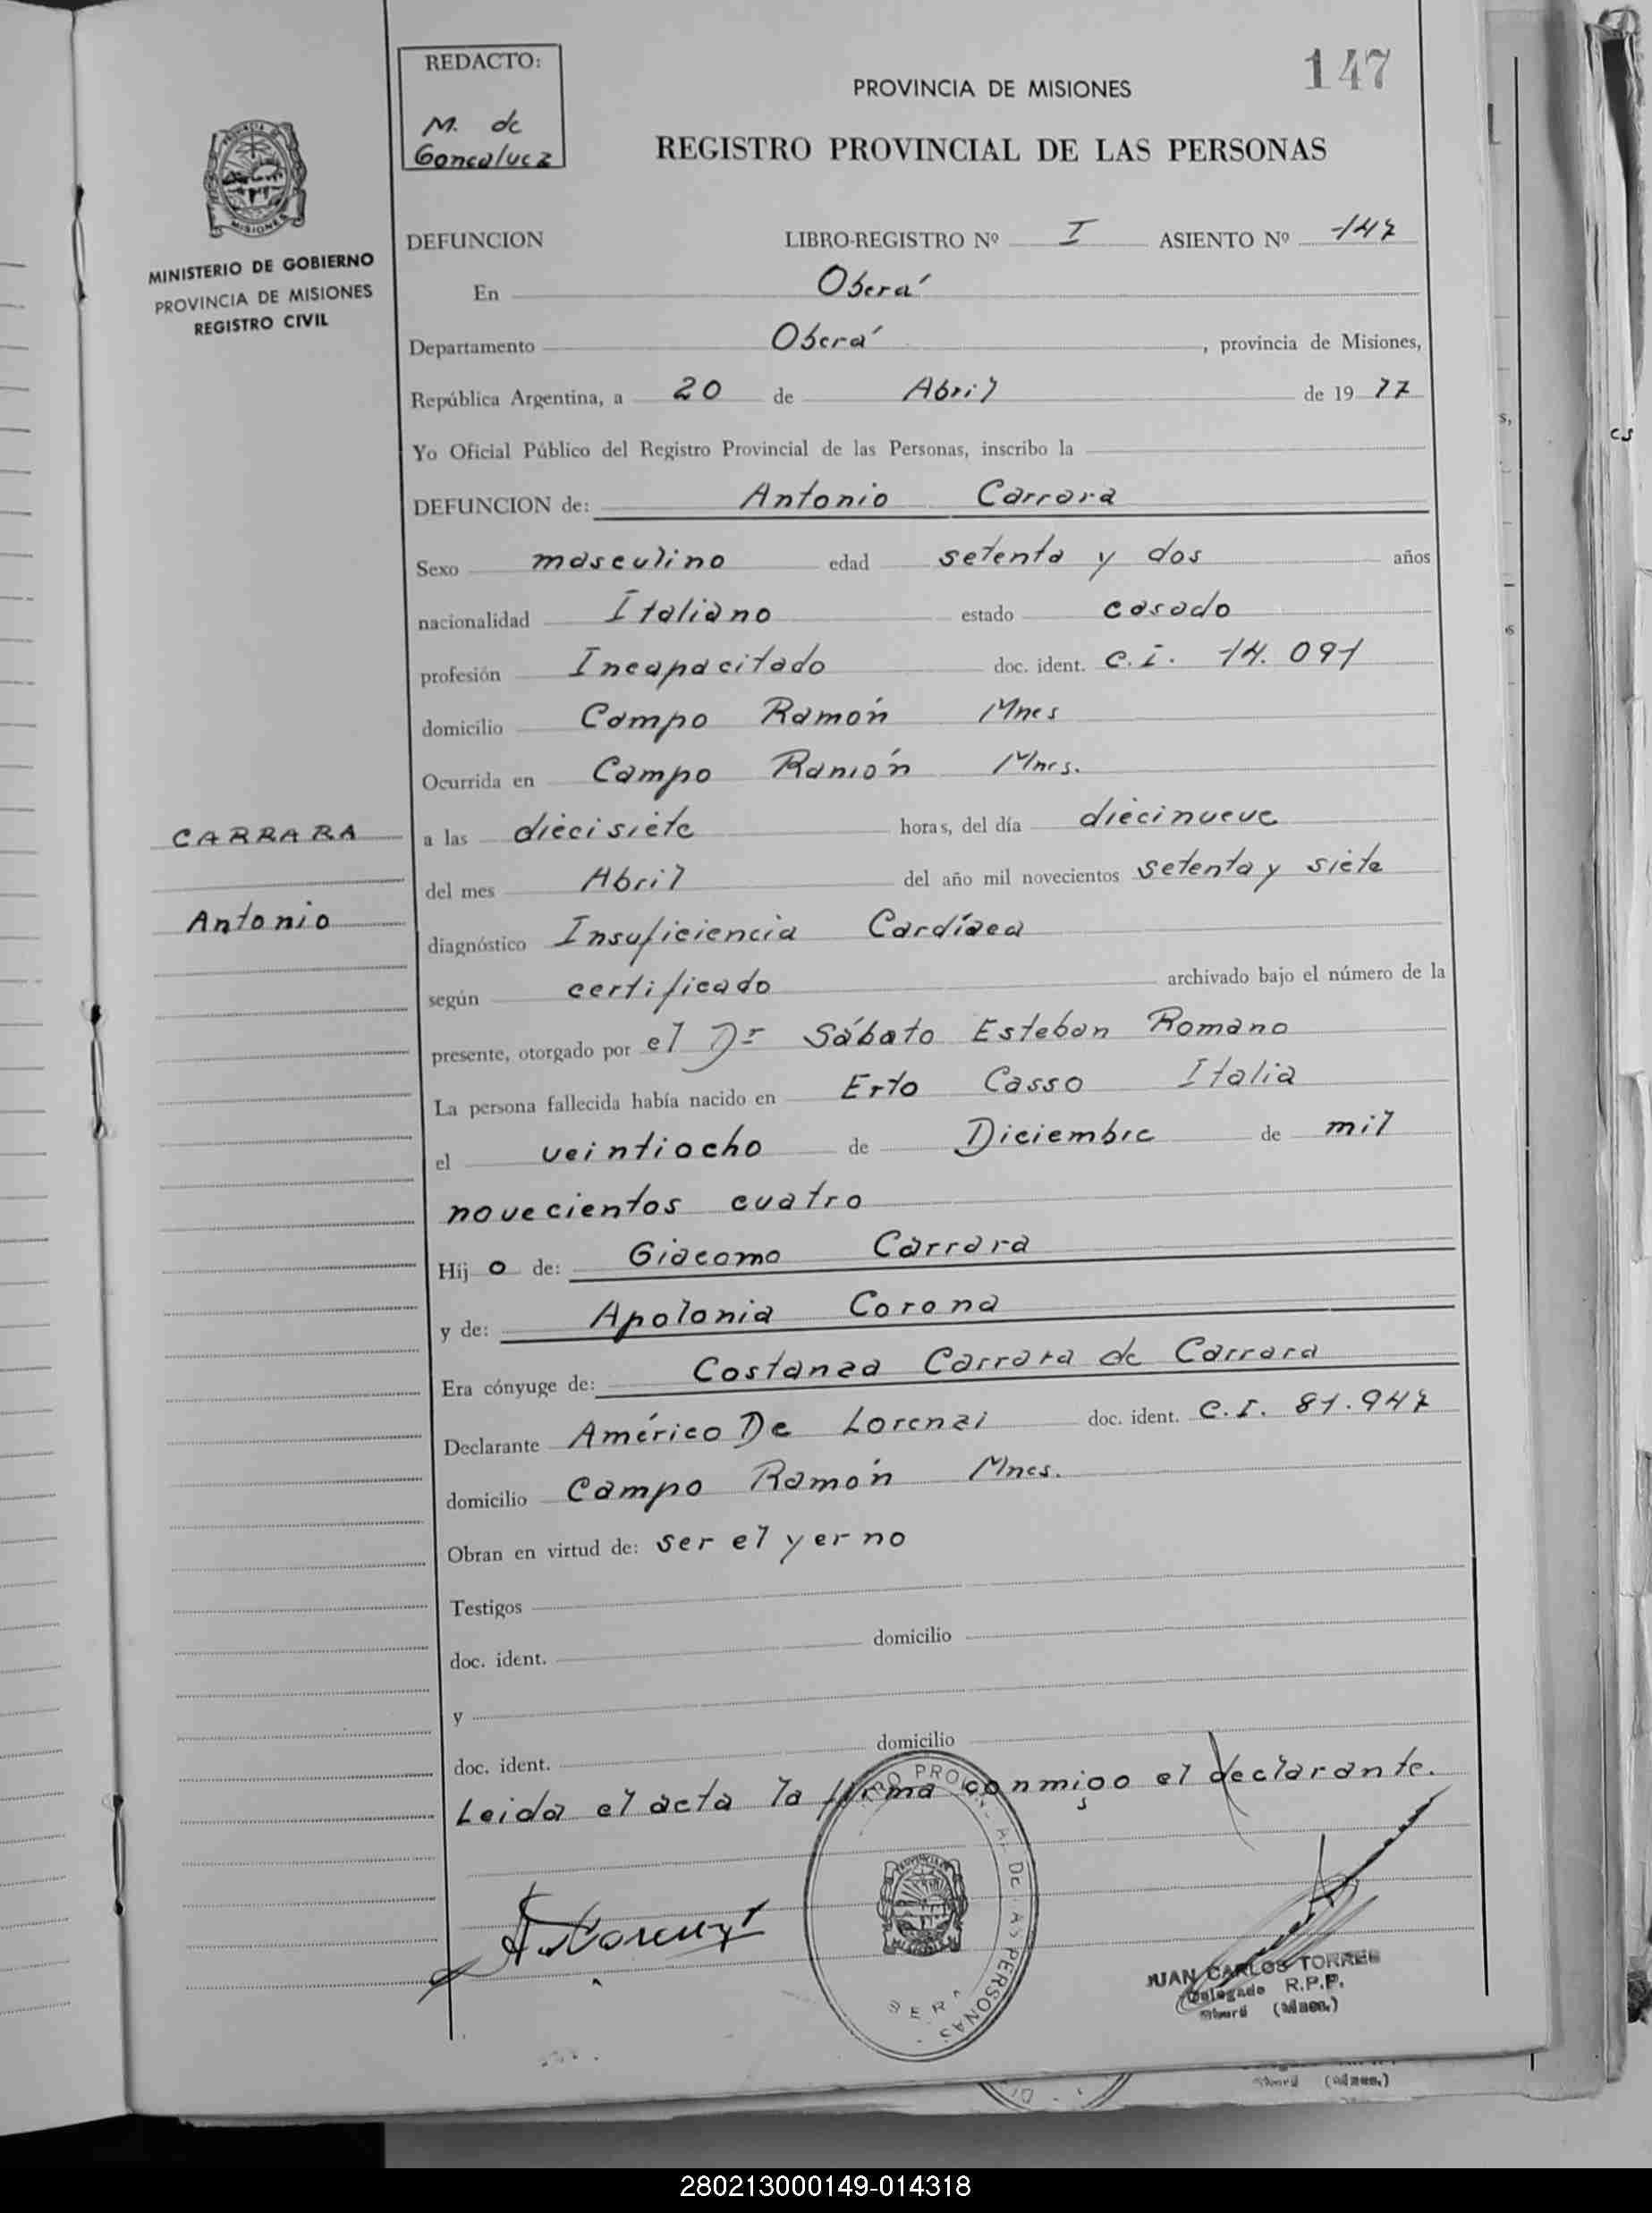 147
REDACTO:
M. de
Goncalvez
PROVINCIA DE MISIONES
REGISTRO PROVINCIAL DE LAS PERSONAS
MISIONES
MINISTERIO DE GOBIERNO
PROVINCIA DE MISIONES
REGISTRO CIVIL
DEFUNCION LIBRO-REGISTRO Nº I ASIENTO Nº 147
En Oberá
Departamento Oberá , provincia de Misiones,
República Argentina, a 20 de Abril de 19 77
Yo Oficial Público del Registro Provincial de las Personas, inscribo la
DEFUNCION de: Antonio Carrara
Sexo masculino edad setenta y dos años
nacionalidad Italiano estado casado
profesión Incapacitado doc. ident. C.i. 14.091
domicilio Campo Ramón Mnes
Ocurrida en Campo Ramón Mnes.
CARRARA
a las diecisiete horas, del día diecinueve
del mes Abril del año mil novecientos setenta y siete
Antonio
diagnóstico Insuficiencia Cardíaca
según certificado archivado bajo el número de la
presente, otorgado por el Dr Sábato Esteban Romano
La persona fallecida había nacido en Erto Casso Italia
el veintiocho de Diciembre de mil
novecientos cuatro
Hij o de: Giacomo Carrara
y de: Apolonia Corona
Era cónyuge de: Costanza Carrara de Carrara
Declarante Américo De Lorenzi doc. ident. C.I. 81.947
domicilio Campo Ramón Mnes.
Obran en virtud de: ser el yerno
Testigos
doc. ident. domicilio
y
doc. ident. domicilio
Leida el acta la firma conmigo el declarante.
JUAN CARLOS TORRES
Delegado R.P.P.
Oberá (Mnes.)
280213000149-014318